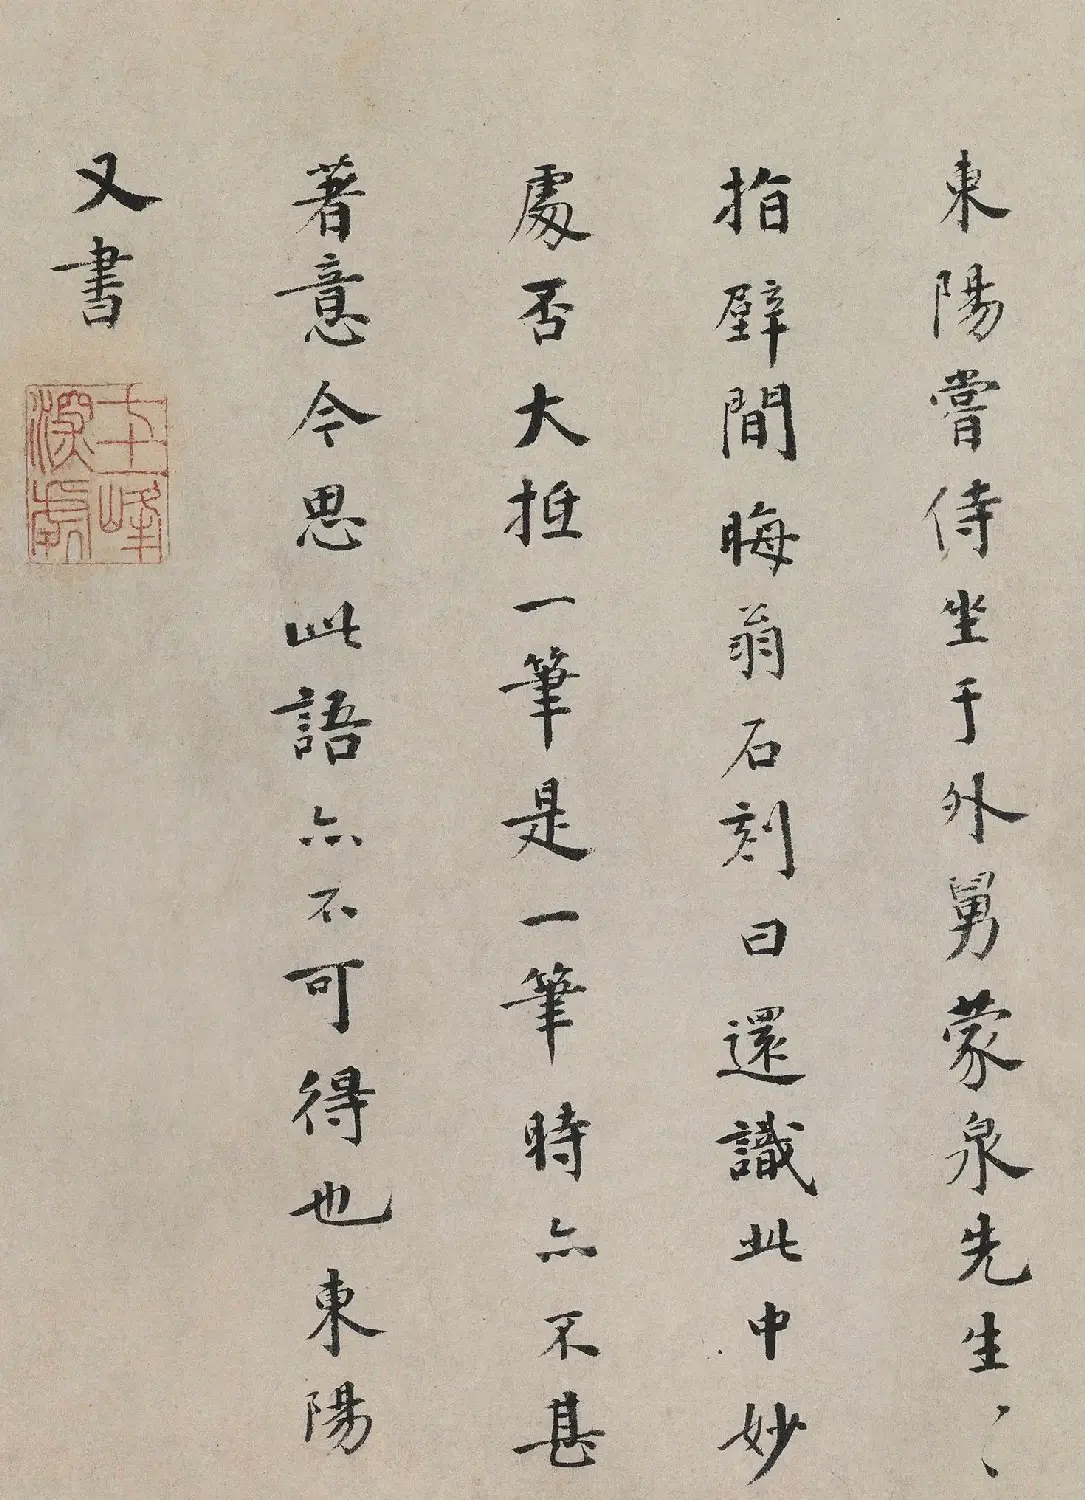 東陽嘗侍坐于外舅蒙泉先生〻
指壁間晦翁石刻曰還識此中妙
處否大抵一筆是一筆時亦不甚
著意今思此語亦不可得也東陽
又書
七十二峰
深處